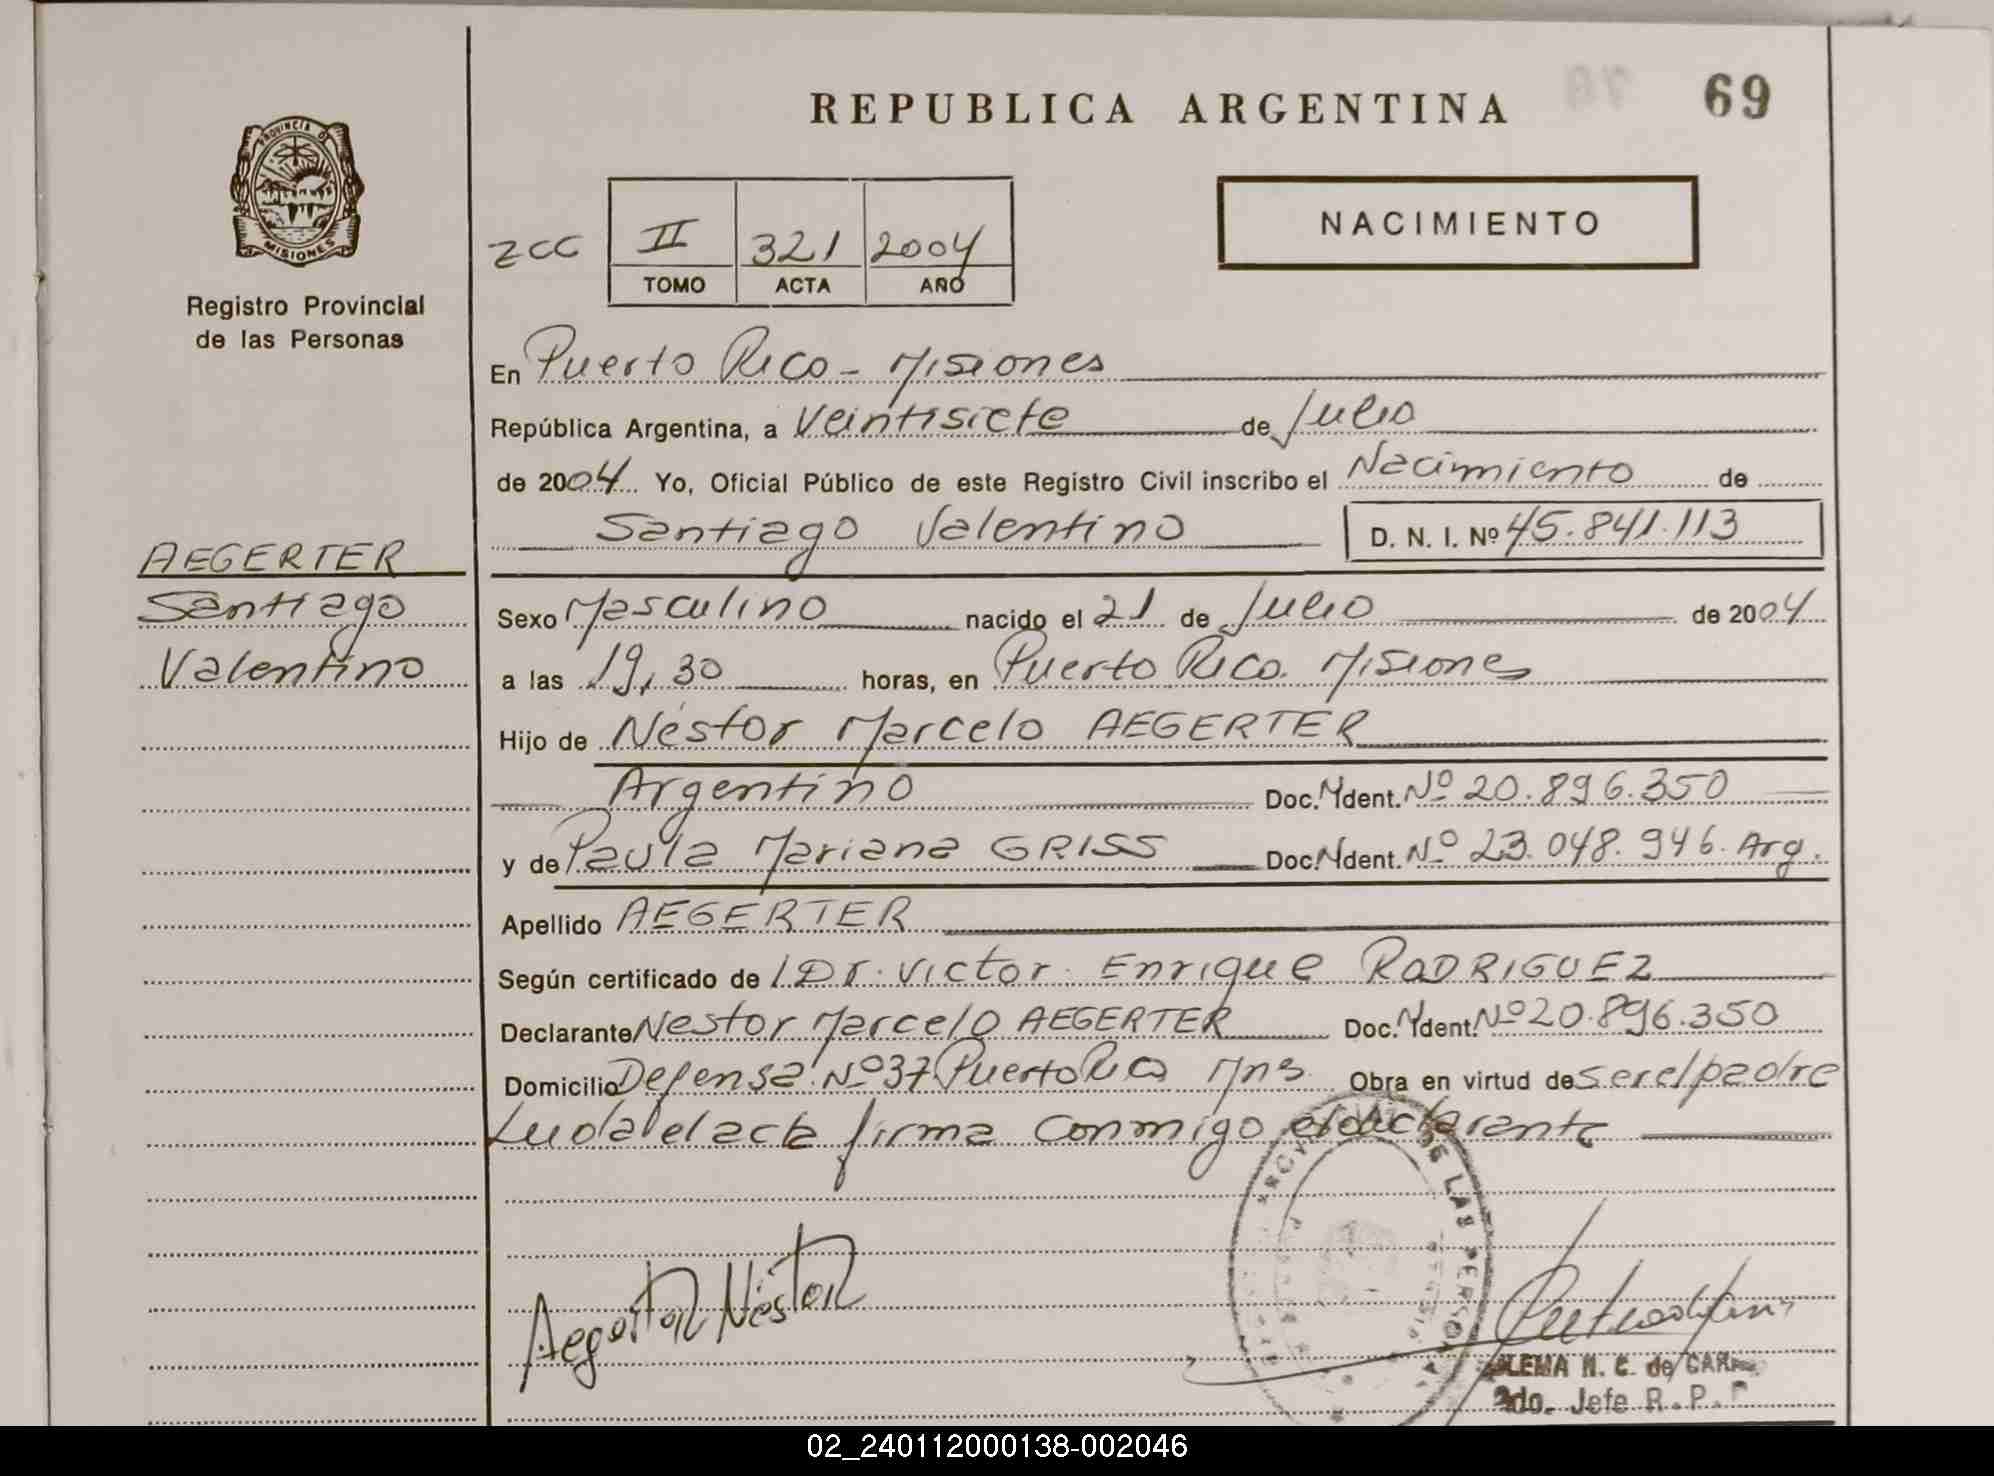 REPUBLICA ARGENTINA
69
PROVINCIA DE
MISIONES
Registro Provincial
de las Personas
ZCC
II 321 2004
TOMO ACTA AÑO
NACIMIENTO
En Puerto Rico - Misiones
República Argentina, a Veintisiete de Julio
de 2004 Yo, Oficial Público de este Registro Civil inscribo el Nacimiento de
Santiago Valentino D. N. I. Nº 45.841.113
AEGERTER
Santiago
Valentino
Sexo Masculino nacido el 21 de Julio de 2004
a las 19,30 horas, en Puerto Rico. Misiones
Hijo de Néstor Marcelo AEGERTER
Argentino Doc. Ident. Nº 20.896.350
y de Paula Mariana GRISS Doc. Ident. Nº 23.048.946. Arg.
Apellido AEGERTER
Según certificado de Dr. Victor Enrique RODRIGUEZ
Declarante Nestor Marcelo AEGERTER Doc. Ident. Nº 20.896.350
Domicilio Defensa Nº 37 Puerto Rico Mns Obra en virtud de ser el padre
Leida el acta firma conmigo el declarante
DE LAS PERSONAS
Aegerter Néstor
N. C. de
2do. Jefe R. P.
02_240112000138-002046